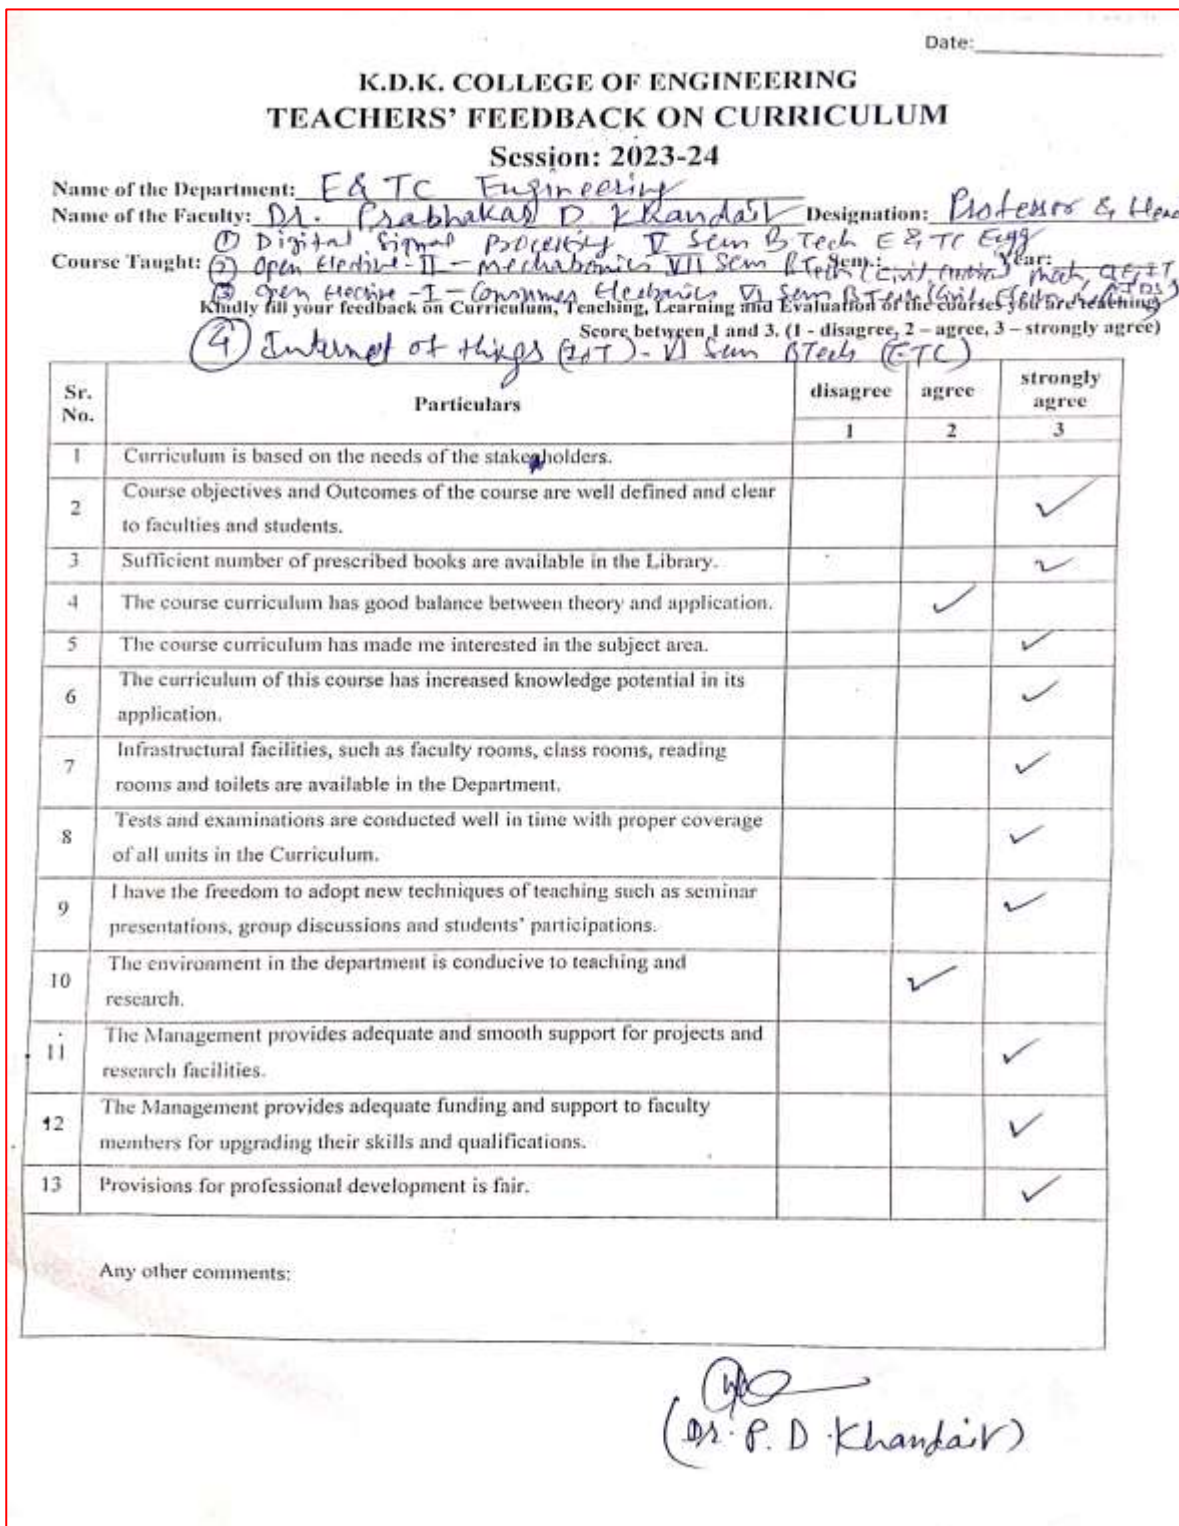 Date:
K.D.K. COLLEGE OF ENGINEERING
TEACHERS' FEEDBACK ON CURRICULUM
Session: 2023-24
Name of the Department: E & TC Engineering
Name of the Faculty: Dr. Prabhakar D Khandait Designation: Professor & Head
① Digital Signal Processing V Sem B Tech E & TC Engg
Course Taught: ② Open Elective-II - Mechatronics VII Sem B Tech (Civil Mech, IT, Sem.: Year:
③ Open Elective-I - Consumer Electronics VI Sem B Tech (Civil,
Kindly fill your feedback on Curriculum, Teaching, Learning and Evaluation of the courses you are teaching
Score between 1 and 3. (1 - disagree, 2 – agree, 3 – strongly agree)
④ Internet of things (IoT) - VI Sem BTech (ETC)
Sr. No. Particulars disagree agree strongly agree
1 2 3
1 Curriculum is based on the needs of the stakeholders.
2 Course objectives and Outcomes of the course are well defined and clear
to faculties and students. ✓
3 Sufficient number of prescribed books are available in the Library. ✓
4 The course curriculum has good balance between theory and application. ✓
5 The course curriculum has made me interested in the subject area. ✓
6 The curriculum of this course has increased knowledge potential in its
application. ✓
7 Infrastructural facilities, such as faculty rooms, class rooms, reading
rooms and toilets are available in the Department. ✓
8 Tests and examinations are conducted well in time with proper coverage
of all units in the Curriculum. ✓
9 I have the freedom to adopt new techniques of teaching such as seminar
presentations, group discussions and students' participations. ✓
10 The environment in the department is conducive to teaching and
research. ✓
11 The Management provides adequate and smooth support for projects and
research facilities. ✓
12 The Management provides adequate funding and support to faculty
members for upgrading their skills and qualifications. ✓
13 Provisions for professional development is fair. ✓
Any other comments:
(Dr. P. D. Khandait)